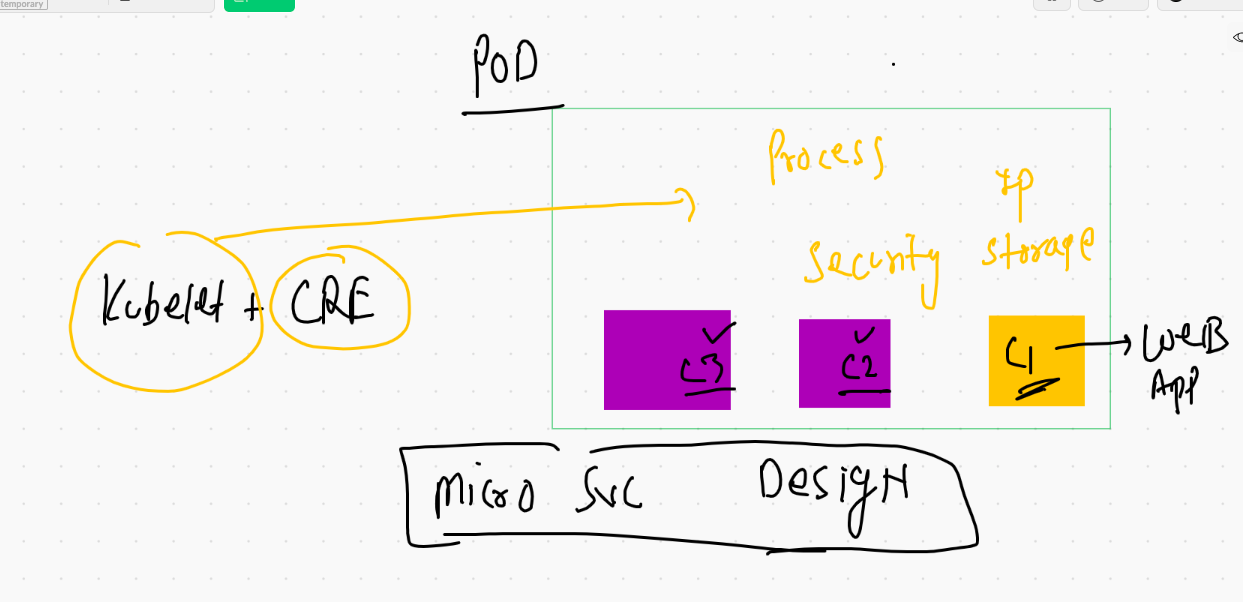 temporary
POD
Process
IP
Security
Storage
Kubelet + CRE
C3
C2
C1
WEB
APP
Micro Svc Design